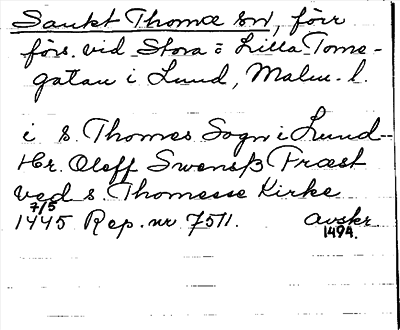 Sankt Thomæ sn, förr
förs. vid Stora o Lilla Tome-
gatan i Lund, Malm. l.
i s. Thomes Sogn i Lund--
Hr. Oleff Swenss Præst
ved s. Thomesse Kirke
7/5
1445 Rep. nr 7511. avskr.
1494.